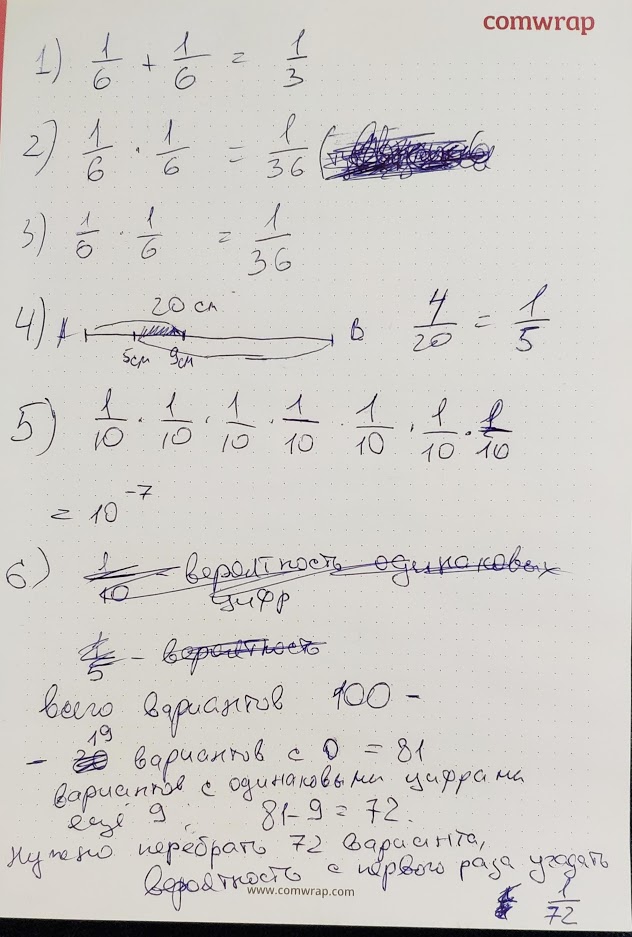 comwrap
1) 1/6 + 1/6 = 1/3
2) 1/6 · 1/6 = 1/36 (
3) 1/6 · 1/6 = 1/36
20 см
4) A B 4/20 = 1/5
5см 9см
5) 1/10 · 1/10 · 1/10 · 1/10 · 1/10 · 1/10 · 1/10
= 10⁻⁷
6) 1/10 - вероятность одинаковых
цифр
1/5 - вероятность
всего вариантов 100 -
19
- 20 вариантов с 0 = 81
вариантов с одинаковыми цифрами
ещё 9 81-9 = 72.
Нужно перебрать 72 варианта,
вероятность с первого раза угадать
www.comwrap.com
1/72